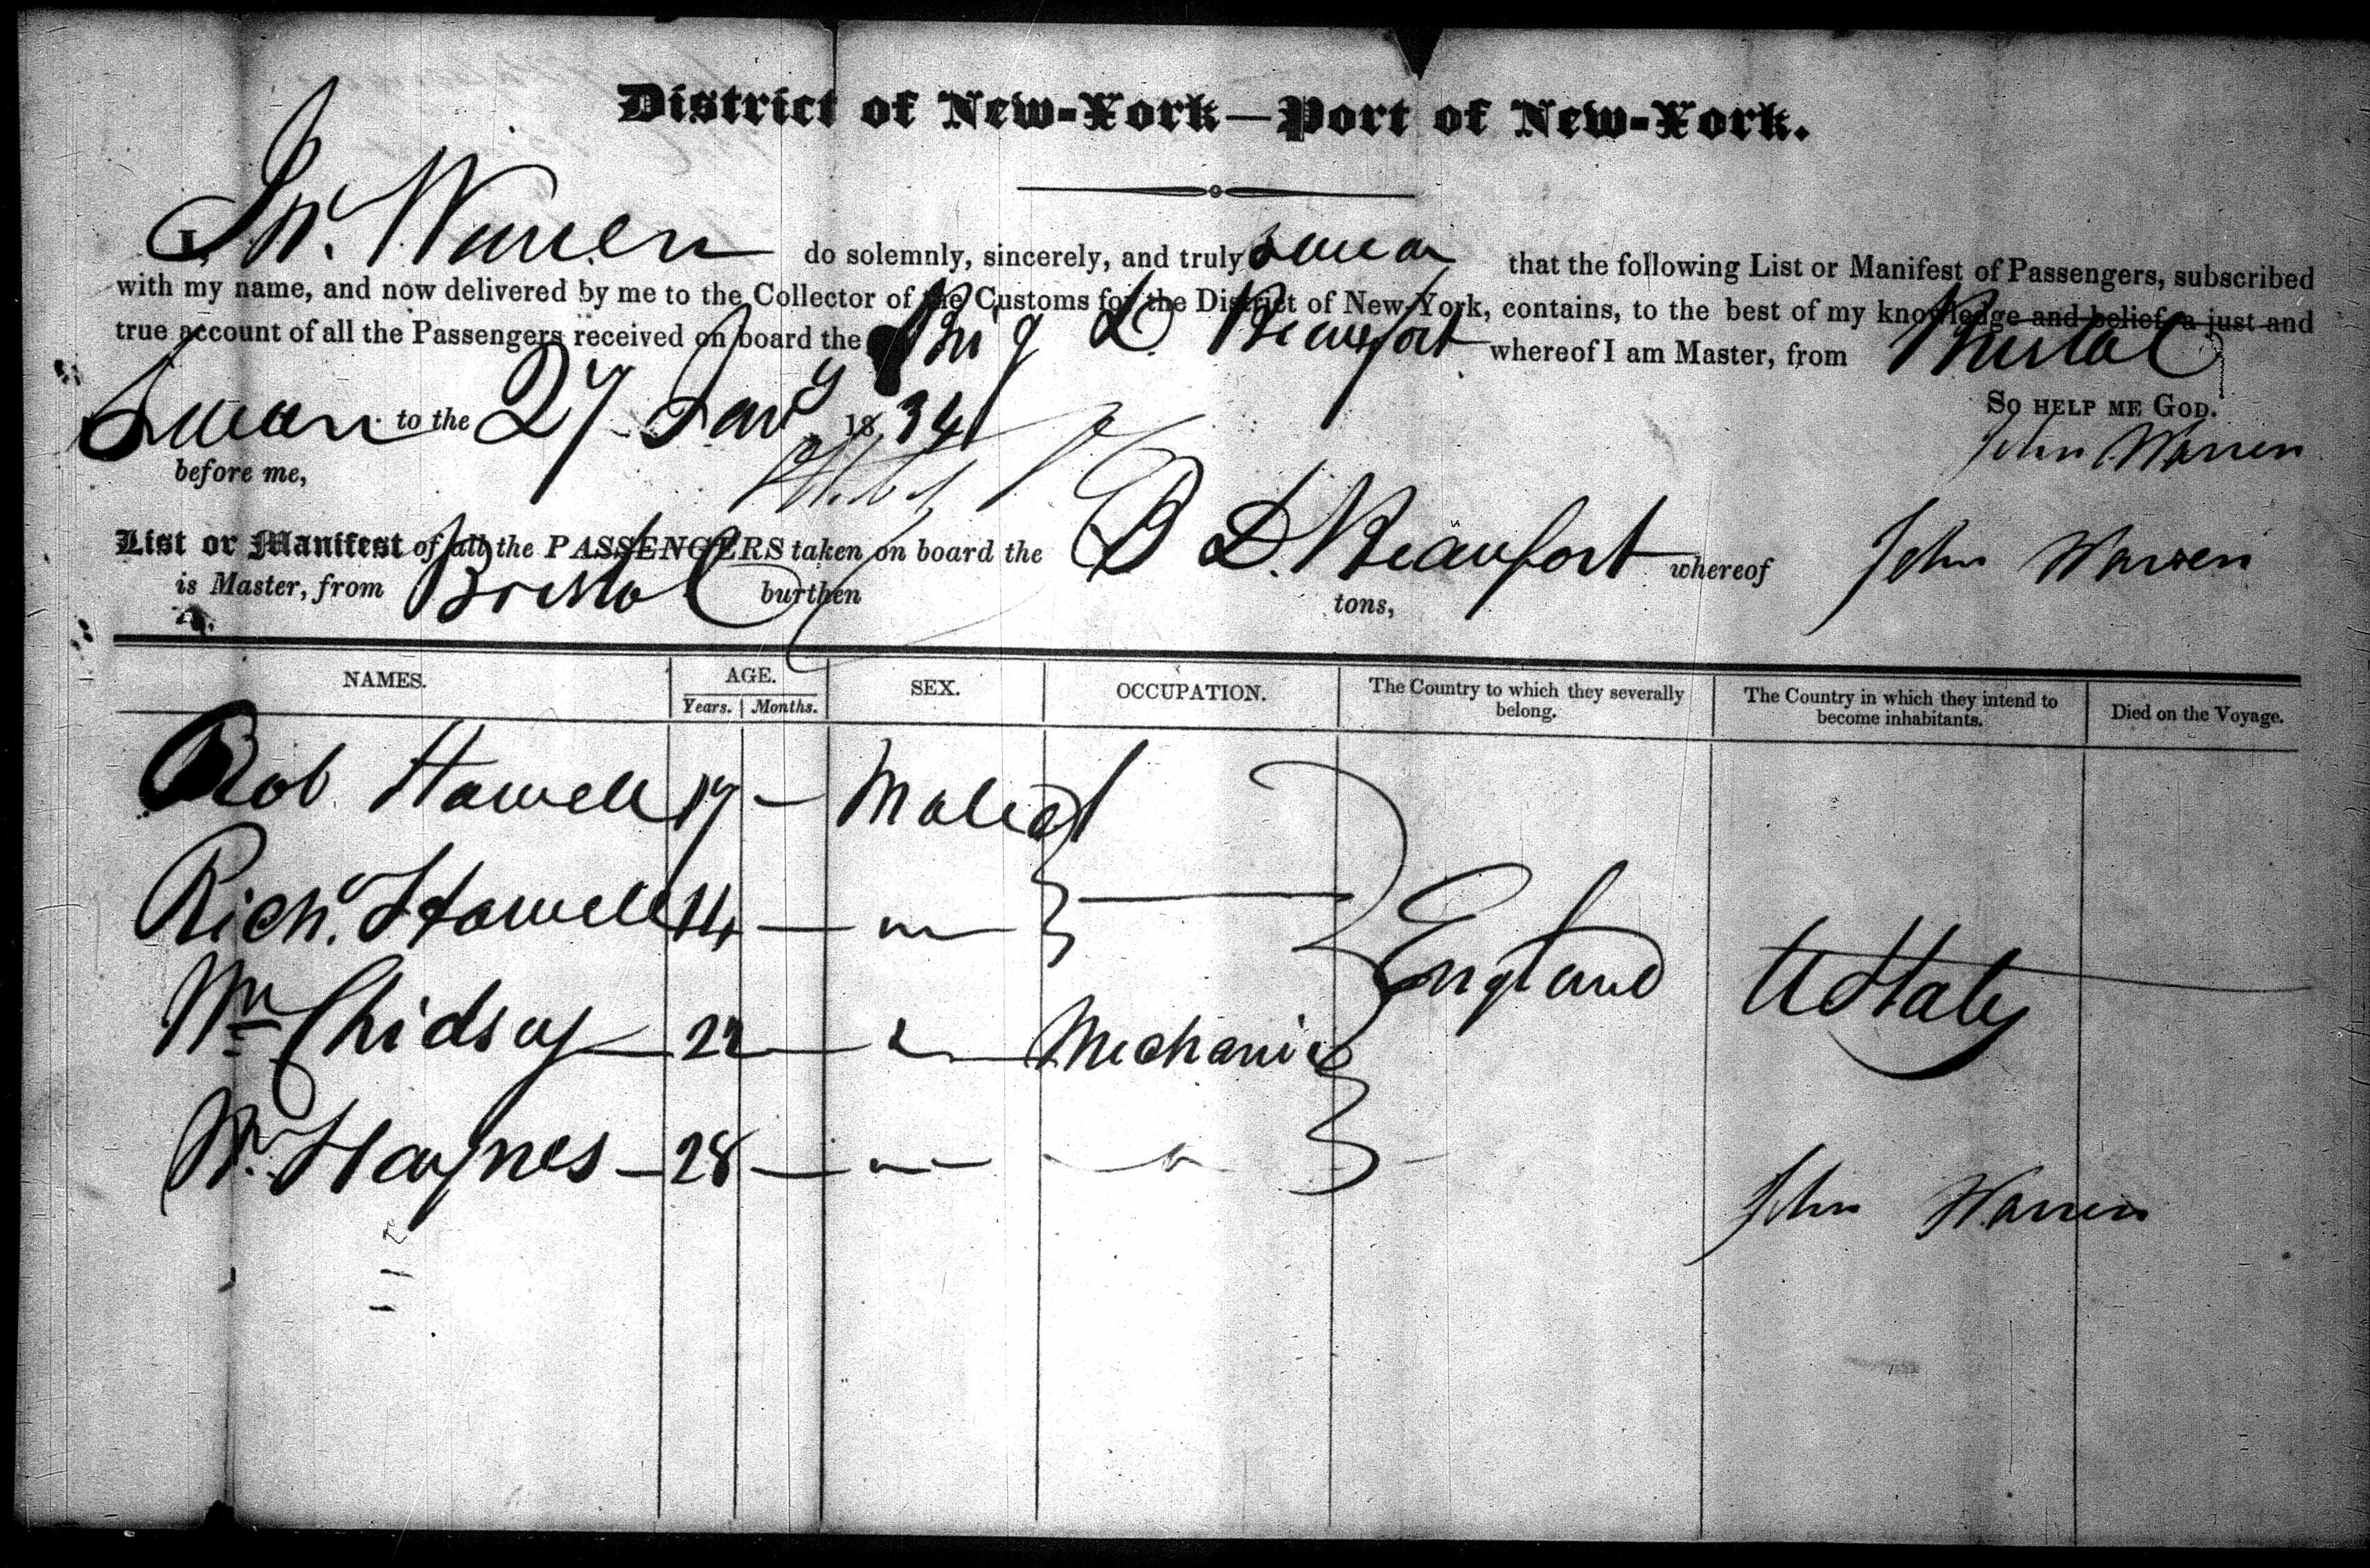 District of New-York—Port of New-York.
I, Jno. Warren do solemnly, sincerely, and truly swear that the following List or Manifest of Passengers, subscribed
with my name, and now delivered by me to the Collector of the Customs for the District of New-York, contains, to the best of my knowledge and belief, a just and
true account of all the Passengers received on board the Brig L. Beaufort whereof I am Master, from Bristol
So help me God.
Sworn to the 27 Jany 1834 John Warren
before me,
List or Manifest of all the PASSENGERS taken on board the B L. Beaufort whereof John Warren
is Master, from Bristol burthen tons,
NAMES. AGE. SEX. OCCUPATION. The Country to which they severally belong. The Country in which they intend to become inhabitants. Died on the Voyage.
Years. Months.
Rob Howell 17 — Male
Richd. Howell 14 —
England U States
Wm Chidsey 22 — Mechanic
Wm. Haynes — 28 —
John Warren